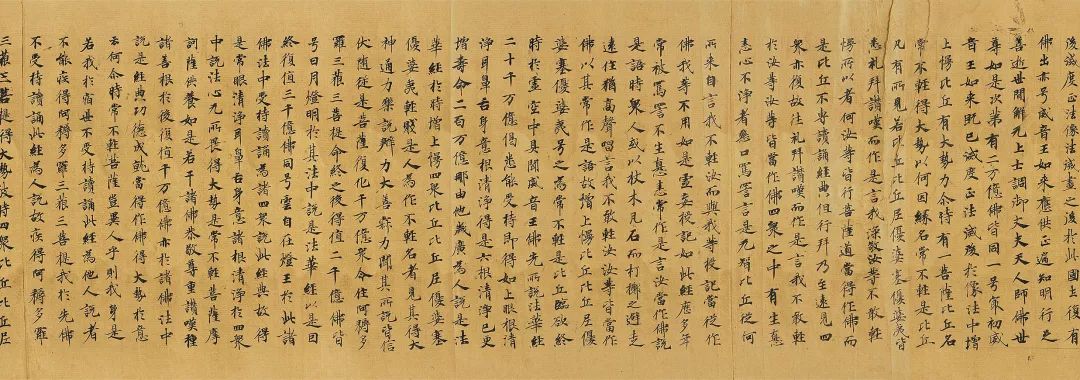 滅度正法像法滅盡之後於此國土復有
佛出亦号威音王如來應供正遍知明行足
善逝世間解无上士調御丈夫天人師佛世
尊如是次第有二万億佛皆同一号寂初威
音王如來既已滅度正法滅後於像法中增
上慢比丘有大勢力尒時有一菩薩比丘名
常不輕得大勢以何因緣名常不輕是比丘
凡有所見若比丘比丘尼優婆塞優婆夷皆
悉礼拜讚嘆而作是言我深敬汝等不敢輕
慢所以者何汝等皆行菩薩道當得作佛而
是比丘不專讀誦經典但行礼拜乃至遠見四
眾亦復故往礼拜讚嘆而作是言我不敢輕
於汝等汝等皆當作佛四眾之中有生恚
恚心不淨者惡口罵詈言是无智比丘從何
所來自言我不輕汝而與我等授記當得作
佛我等不用如是虛妄授記如此經歷多年
常被罵詈不生恚恚常作是言汝當作佛說
是語時眾人或以杖木瓦石而打擲之避走
遠住猶高聲唱言我不敢輕汝汝等皆當作
佛以其常作是語故增上慢比丘比丘尼優
婆塞優婆夷号之為常不輕是比丘臨欲終
時於虛空中具聞威音王佛先所說法華經
二十千万億偈悉能受持即得如上眼根清
淨耳鼻舌身意根清淨得是六根清淨已更
增壽命二百万億那由他歲廣為人說是法
華經於時增上慢四眾比丘比丘尼優婆塞
優婆夷輕賤是人為作不輕名者見其得大
神通力樂說辯力大善寂力聞其所說皆信
伏隨從是菩薩復化千万億眾令住阿耨多
羅三藐三菩提命終之後得值二千億佛皆
号日月燈明於其法中說是法華經以是因
緣復值二千億佛同号雲自在燈王於此諸
佛法中受持讀誦為諸四眾說此經典故得
是常眼清淨耳鼻舌身意諸根清淨於四眾
中說法心无所畏得大勢是常不輕菩薩摩
訶薩供養如是若干諸佛恭敬尊重讚嘆種
諸善根於後復值千万億佛亦於諸佛法中
說是經典功德成就當得作佛得大勢於意
云何尒時常不輕菩薩豈異人乎則我身是
若我於宿世不受持讀誦此經為他人說者
不能疾得阿耨多羅三藐三菩提我於先佛
所受持讀誦此經為人說故疾得阿耨多羅
三藐三菩提得大勢彼時四眾比丘比丘尼